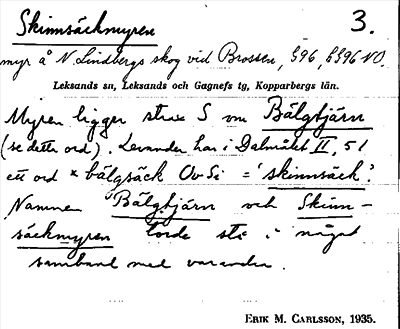 Skinnsäckmyren 3.
myr å N. Lindbergs skog vid Brossen, §96, f§96 NO.
Leksands sn, Leksands och Gagnefs tg, Kopparbergs län.
Myren ligger strax S om Bälgtjärn
(se detta ord). Levander har i Dalmålet II, 51
ett ord * bälgsäck Ov Si = 'skinnsäck'.
Namnen Bälgtjärn och Skinn-
säckmyren torde stå i något
samband med varandra.
ERIK M. CARLSSON, 1935.